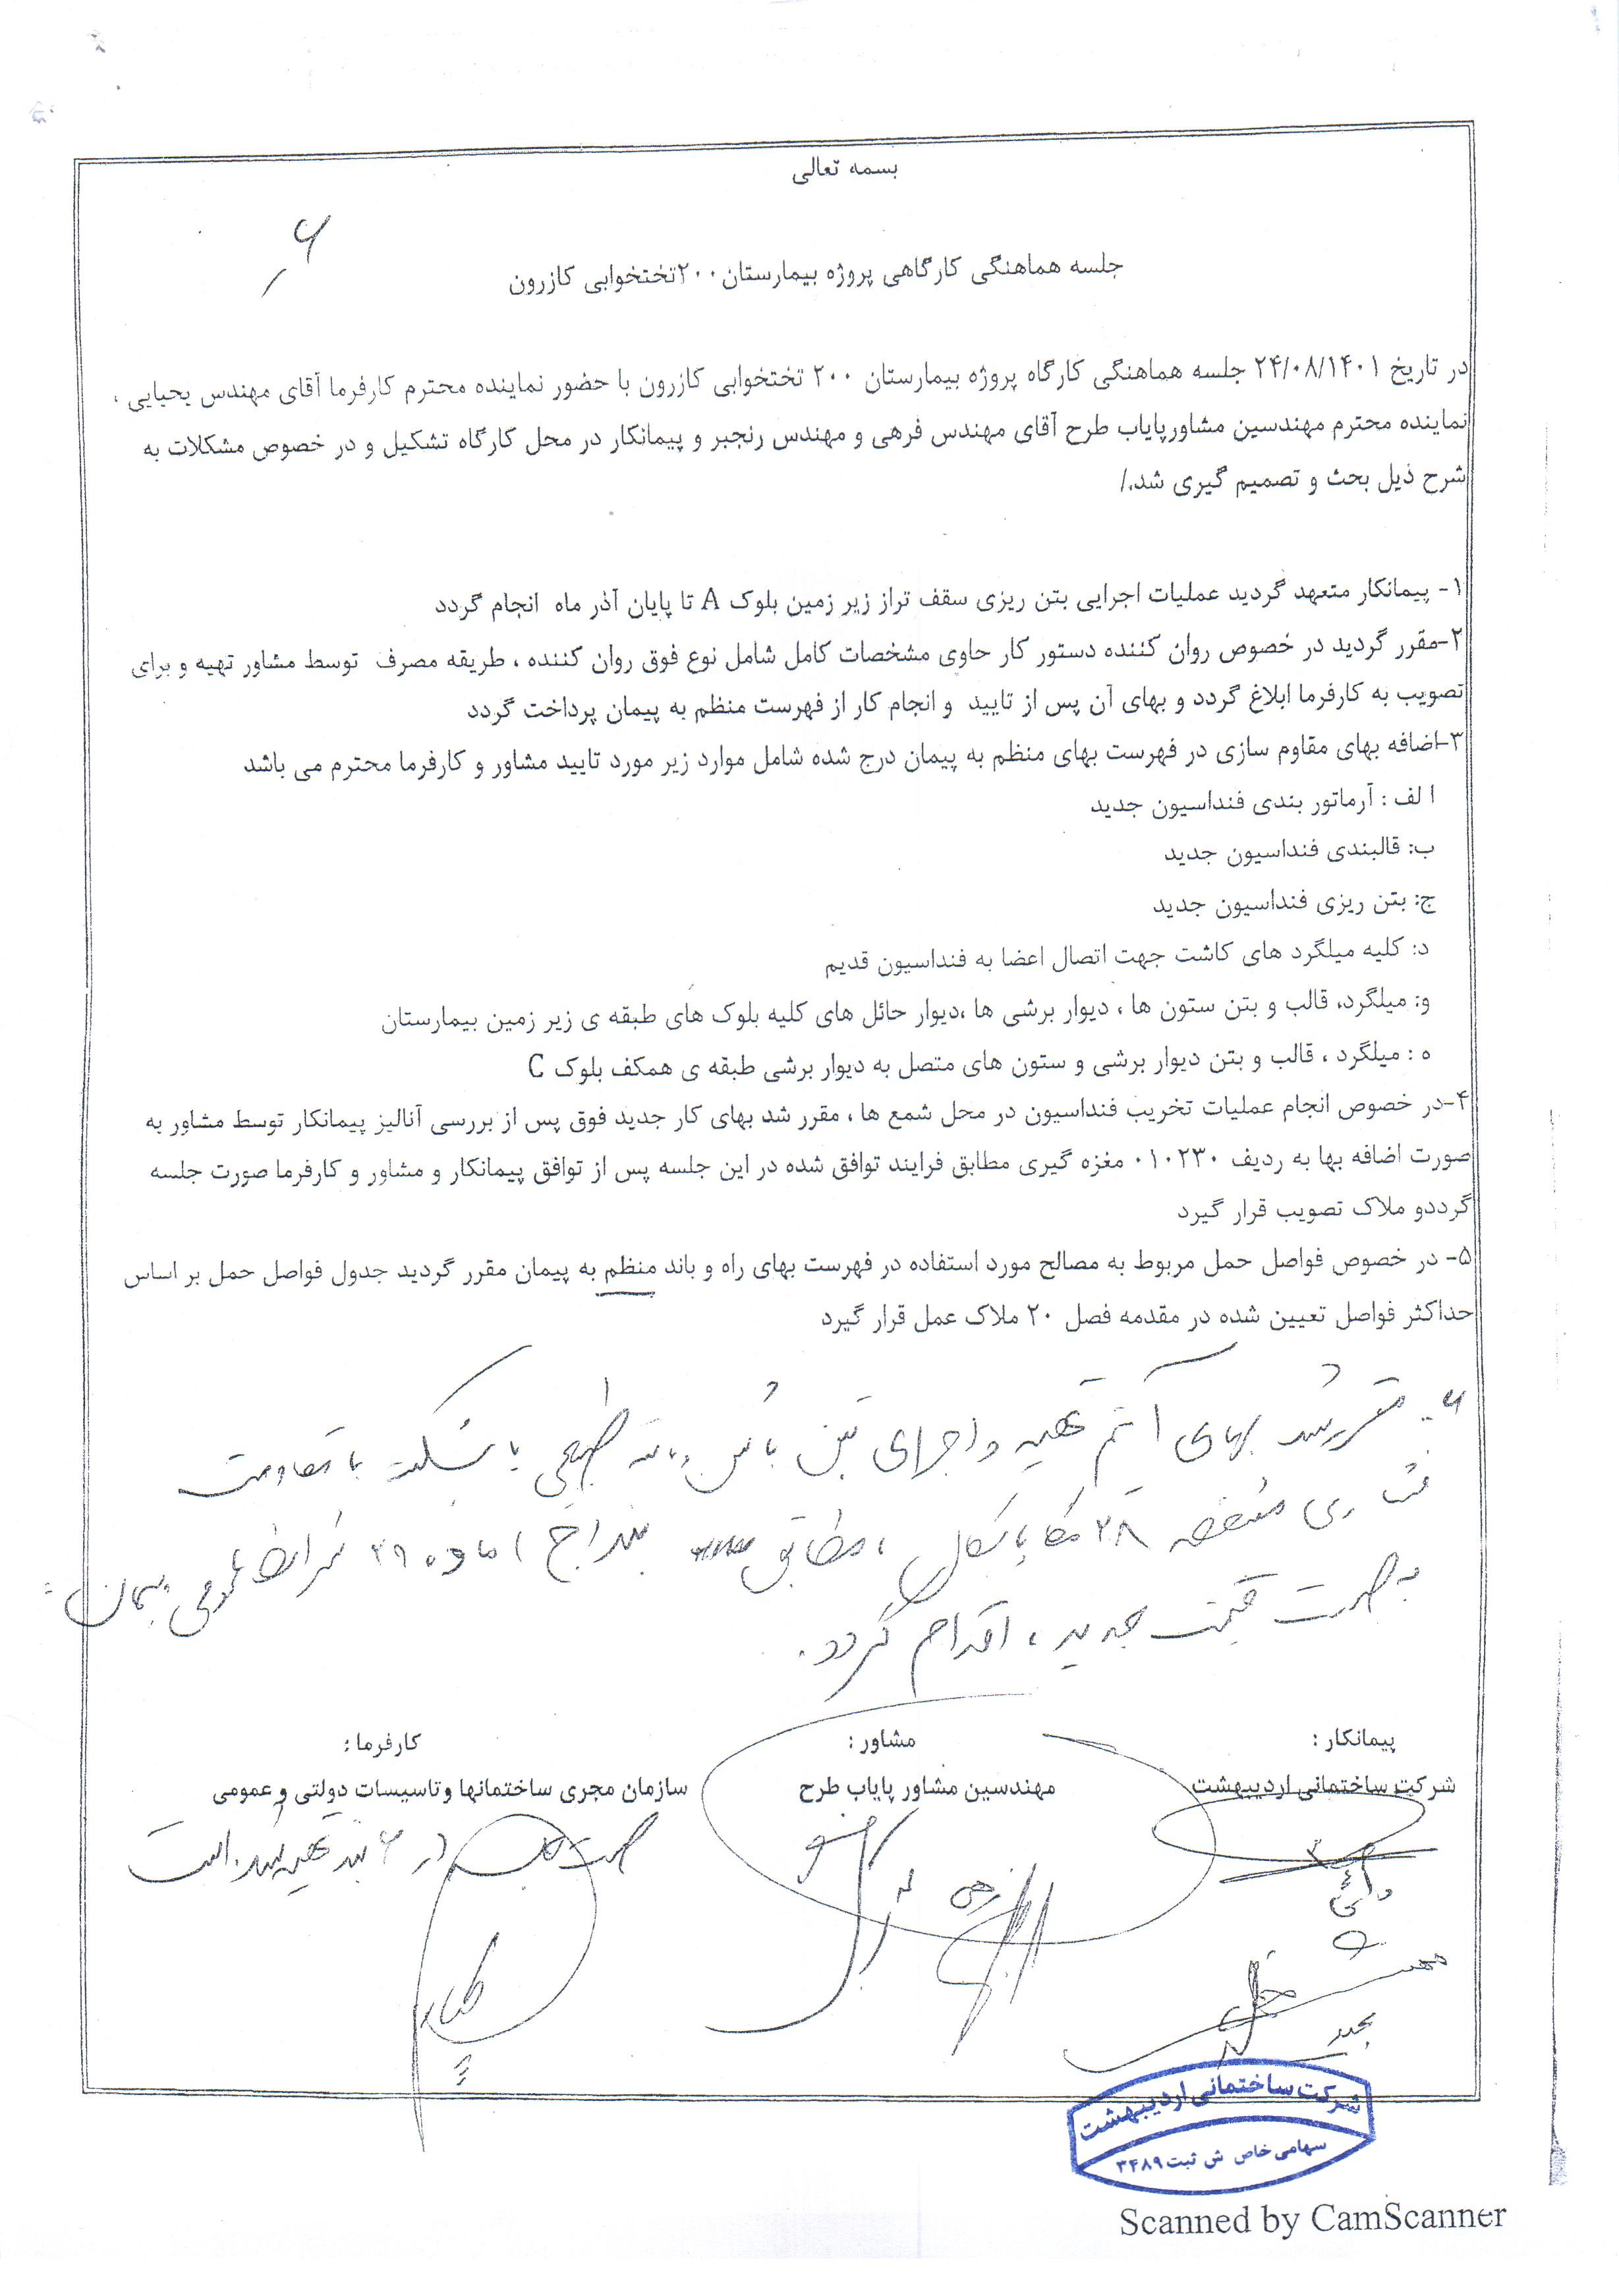 بسمه تعالی
۶
جلسه هماهنگی کارگاهی پروژه بیمارستان۲۰۰تختخوابی کازرون
در تاریخ ۲۴/۰۸/۱۴۰۱ جلسه هماهنگی کارگاه پروژه بیمارستان ۲۰۰ تختخوابی کازرون با حضور نماینده محترم کارفرما آقای مهندس یحیایی ،
نماینده محترم مهندسین مشاورپایاب طرح آقای مهندس فرهی و مهندس رنجبر و پیمانکار در محل کارگاه تشکیل و در خصوص مشکلات به
شرح ذیل بحث و تصمیم گیری شد./
۱- پیمانکار متعهد گردید عملیات اجرایی بتن ریزی سقف تراز زیر زمین بلوک A تا پایان آذر ماه انجام گردد
۲-مقرر گردید در خصوص روان کننده دستور کار حاوی مشخصات کامل شامل نوع فوق روان کننده ، طریقه مصرف توسط مشاور تهیه و برای
تصویب به کارفرما ابلاغ گردد و بهای آن پس از تایید و انجام کار از فهرست منظم به پیمان پرداخت گردد
۳-اضافه بهای مقاوم سازی در فهرست بهای منظم به پیمان درج شده شامل موارد زیر مورد تایید مشاور و کارفرما محترم می باشد
ا لف : آرماتور بندی فنداسیون جدید
ب: قالبندی فنداسیون جدید
ج: بتن ریزی فنداسیون جدید
د: کلیه میلگرد های کاشت جهت اتصال اعضا به فنداسیون قدیم
و: میلگرد، قالب و بتن ستون ها ، دیوار برشی ها ،دیوار حائل های کلیه بلوک های طبقه ی زیر زمین بیمارستان
ه : میلگرد ، قالب و بتن دیوار برشی و ستون های متصل به دیوار برشی طبقه ی همکف بلوک C
۴-در خصوص انجام عملیات تخریب فنداسیون در محل شمع ها ، مقرر شد بهای کار جدید فوق پس از بررسی آنالیز پیمانکار توسط مشاور به
صورت اضافه بها به ردیف ۰۱۰۲۳۰ مغزه گیری مطابق فرایند توافق شده در این جلسه پس از توافق پیمانکار و مشاور و کارفرما صورت جلسه
گرددو ملاک تصویب قرار گیرد
۵- در خصوص فواصل حمل مربوط به مصالح مورد استفاده در فهرست بهای راه و باند منظم به پیمان مقرر گردید جدول فواصل حمل بر اساس
حداکثر فواصل تعیین شده در مقدمه فصل ۲۰ ملاک عمل قرار گیرد
۶- مقرر شد بهای آیتم تهیه و اجرای بتن با شن و ماسه طبیعی یا شکسته با مقاومت
فشاری مشخصه ۲۸ مگاپاسکال ، مطابق بند ج ماده ۲۹ شرایط عمومی پیمان
به صورت قیمت جدید ، اقدام گردد .
پیمانکار :
شرکت ساختمانی اردیبهشت
مشاور :
مهندسین مشاور پایاب طرح
کارفرما :
سازمان مجری ساختمانها وتاسیسات دولتی و عمومی
صورت جلسه در ۶ بند تهیه شده است
فرهی
شرکت ساختمانی اردیبهشت
سهامی خاص ش ثبت ۳۴۸۹
Scanned by CamScanner